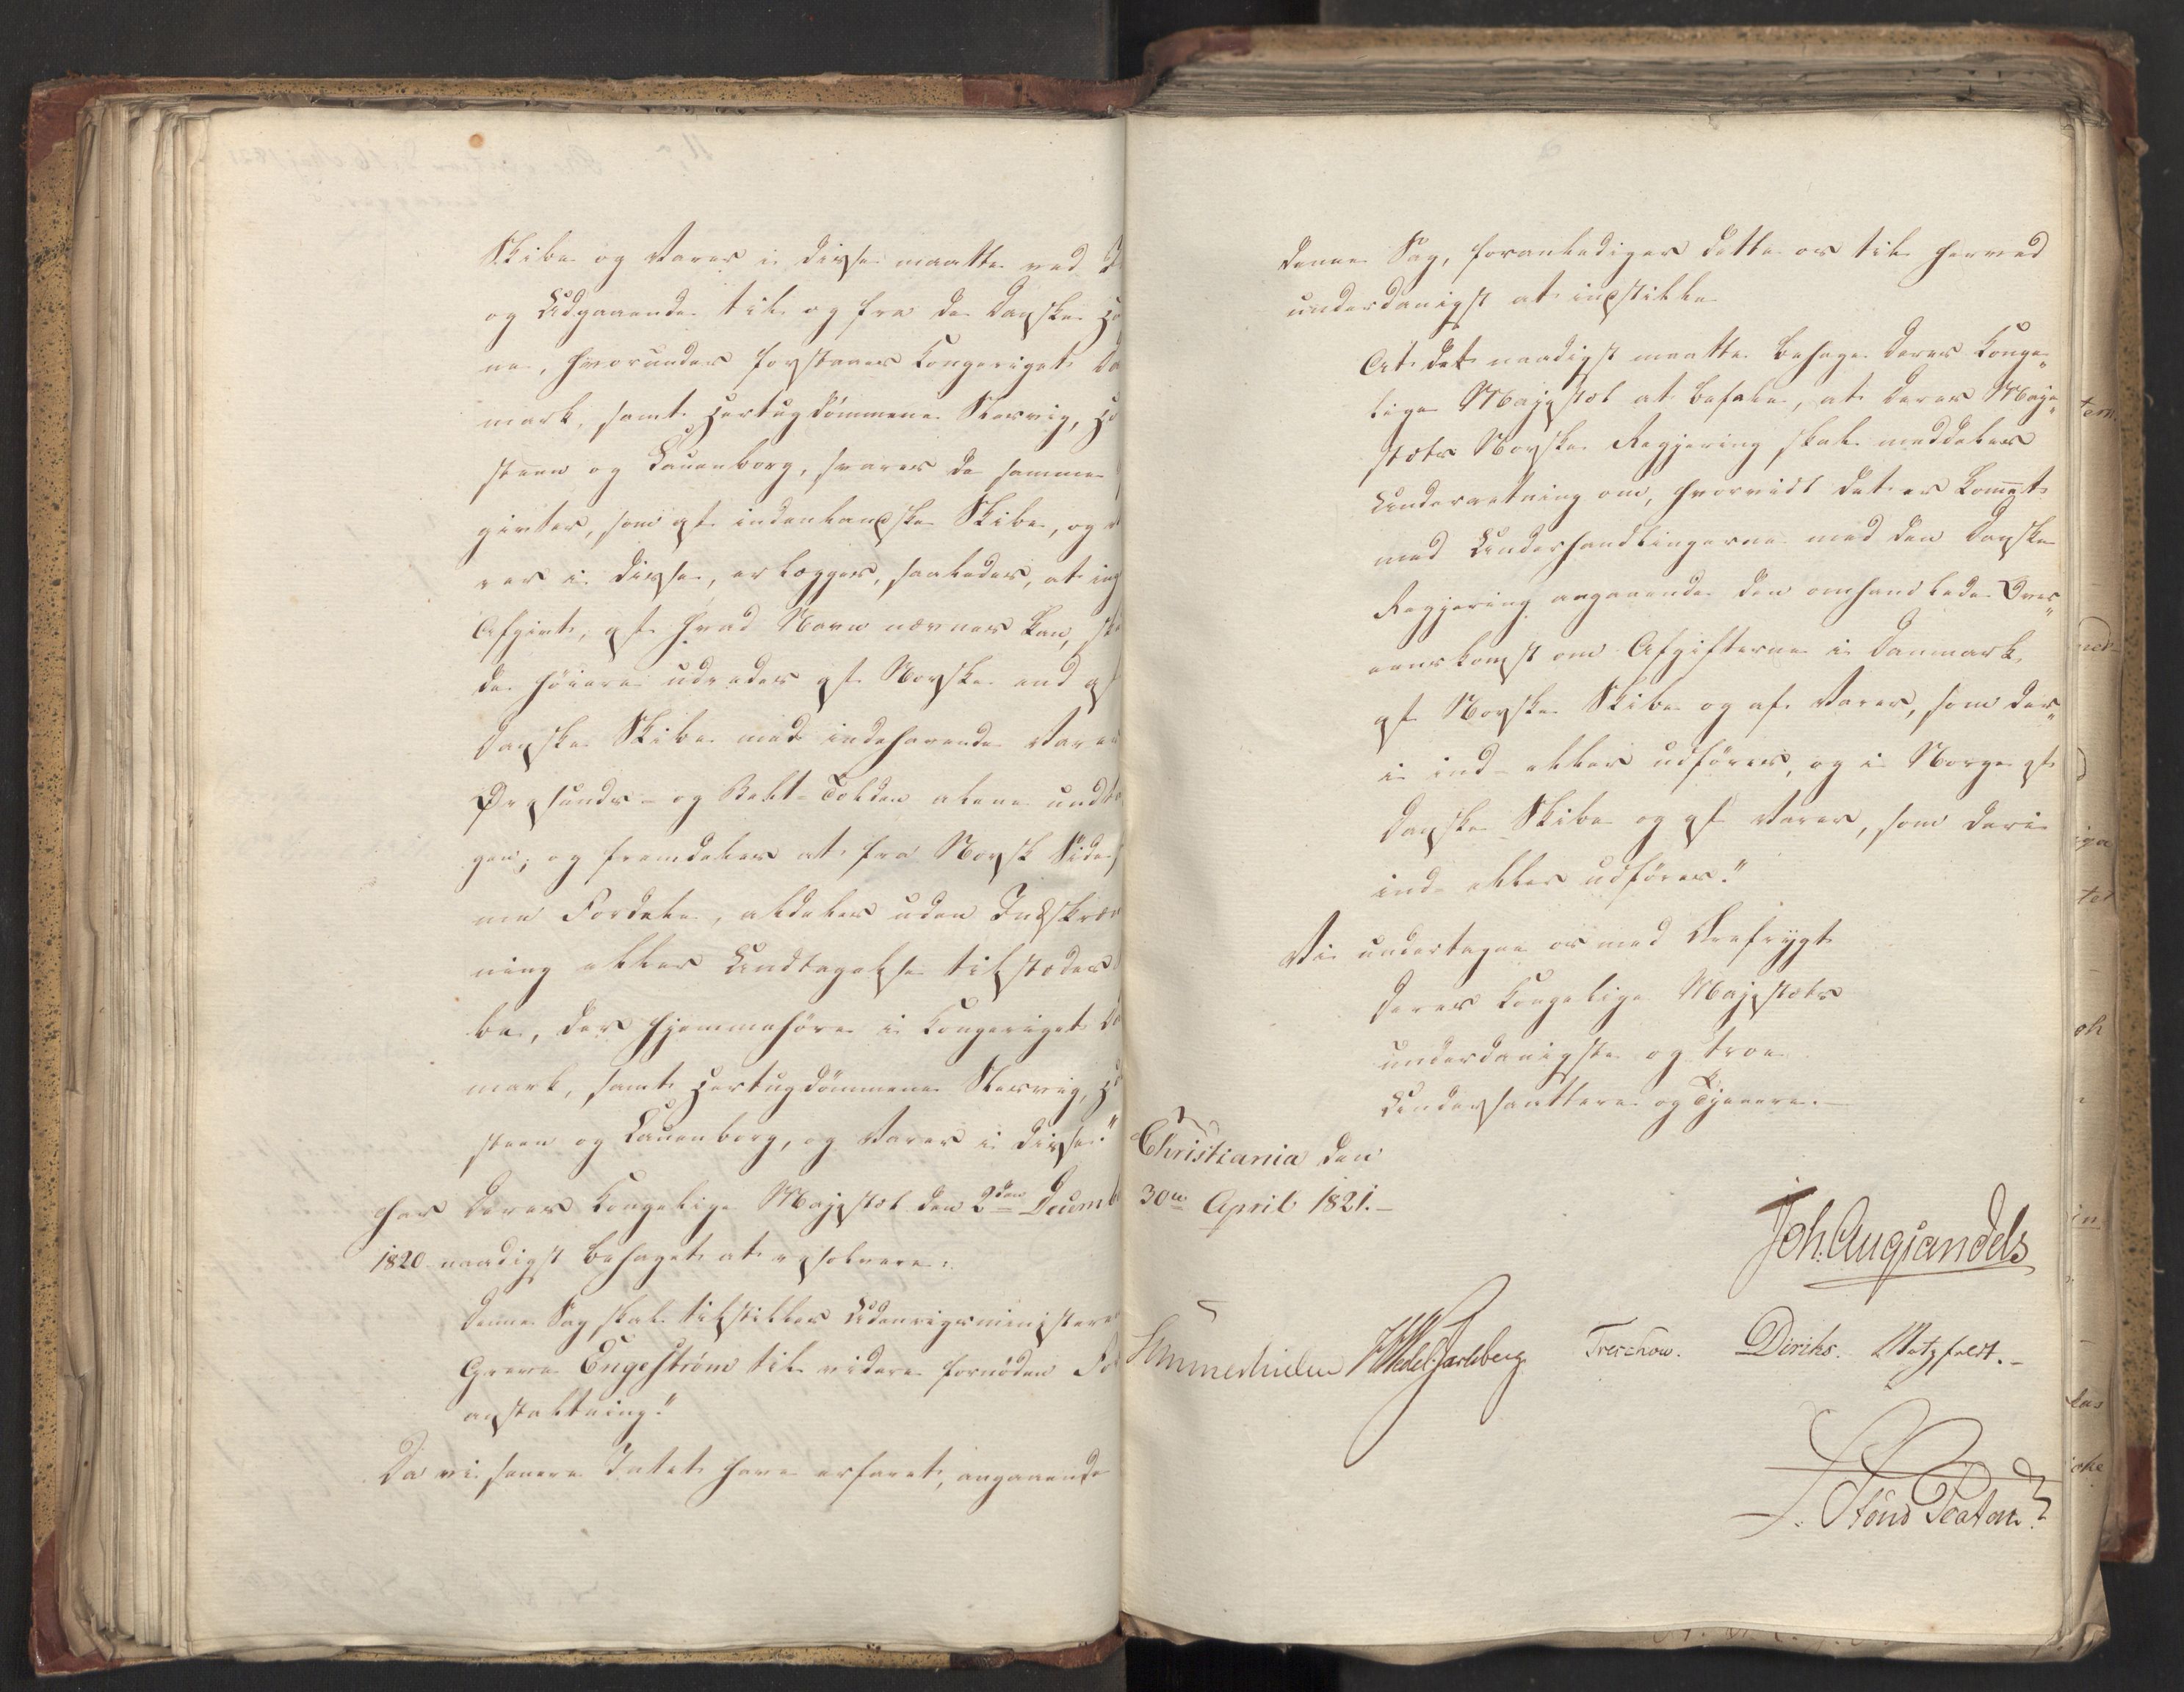 Skibe og Varer i disse maatte ved I
og Udgaaende til og fra de Danske Ha
ne, hvorunder forstaaes Kongeriget Da
mark, samt Hertugdömmene Slesvig, Ho
steen og Lauenborg, svares de samme
givter, som af indenlandske Skibe, og
rer i disse, erlægges, saaledes, at ing
Afgivt, af hvad Navn nævnes kan, ska
de höiere udredes af Norske end af
Danske Skibe med indehavende Varer
Øresunds- og Belt-Tolden alene undta
gen; og fremdeles at fra Norsk Side s
me Fordele, aldeles uden Indskræn
ning eller Undtagelse tilstædes
be, der hjemmehöre i Kongeriget Da
mark, samt Hertugdömmene Slesvig, Ho
steen og Lauenborg, og Varer i disse."
har Deres Kongelige Majestæt den 2den Decemb
1820 naadigst behaget at resolvere:
Denne Sag skal tilstilles Udenrigsministeren
Greve Engeström til videre fornöden Fo
anstaltning."
Da vi senere Intet have erfaret, angaaende
denne Sag, foranlediges dette os til herved
underdanigst at indstille
At det naadigst maatte behage Deres Konge„
lige Majestæt at befale, at Deres Maje„
stæts Norske Regjering skal meddeles
Underretning om, hvorvidt det er kommet
med Underhandlingerne med den Danske
Regjering angaaende den omhandlede Over„
eenskomst om Afgifterne i Danmark
af Norske Skibe og af Varer, som der„
i ind- eller udföres, og i Norge af
Danske Skibe og af Varer, som deri
ind- eller udföres."
Vi undertegne os med Ærefrygt
Deres Kongelige Majestæts
underdanigste og troe
Undersaattere og Tjenere.-
Christiania den
30te April 1821.-
Joh. Aug. Sandels
Sommerhielm HWedel Jarlsberg Treschow. Diriks. Motzfeldt.-